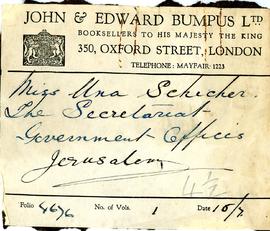 JOHN & EDWARD BUMPUS LTD
BOOKSELLERS TO HIS MAJESTY THE KING
350, OXFORD STREET, LONDON
TELEPHONE: MAYFAIR 1223
Miss Una Schicher.
The Secretariat
Government Offices
Jerusalem
4½
Folio 4676 No. of Vols. 1 Date 16/7